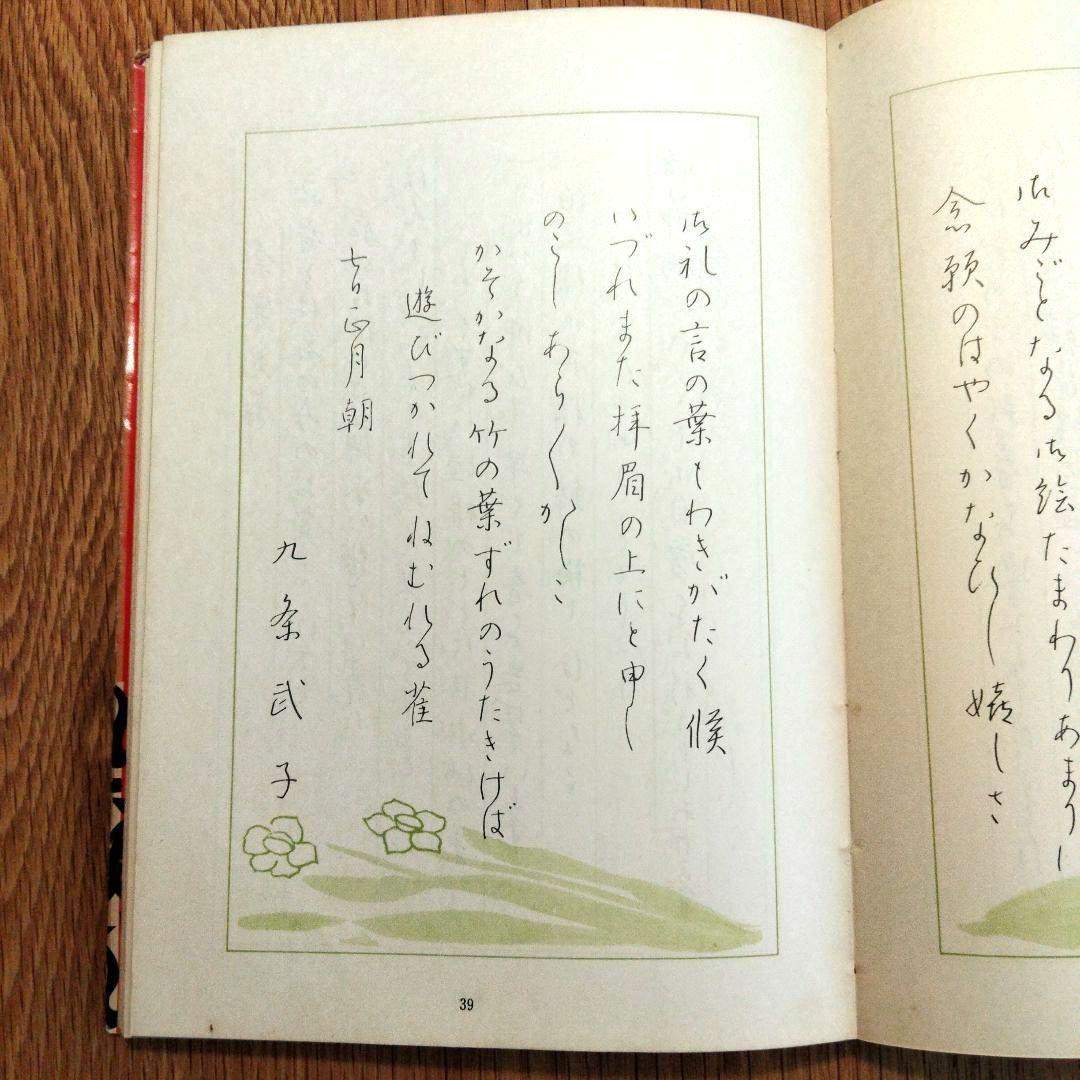 御みごとなる御絵たまわりあまりに
念願のはやくかなひし嬉しさ
御礼の言の葉もわきがたく候
いづれまた拝眉の上にと申し
のこしあら〱かしこ
かそかなる竹の葉ずれのうたきけば
遊びつかれてねむれる雀
七日正月朝
九条武子
39